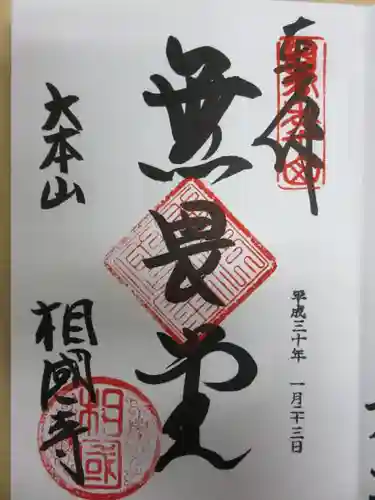 奉拝
平成三十年 一月二十三日
無畏堂
大本山
相國寺
相國